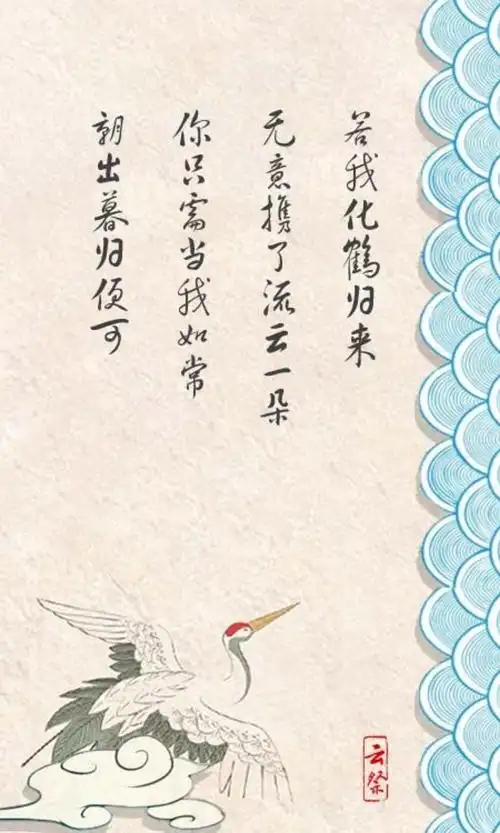 若我化鹤归来
无意携了流云一朵
你只需当我如常
朝出暮归便可
云祭